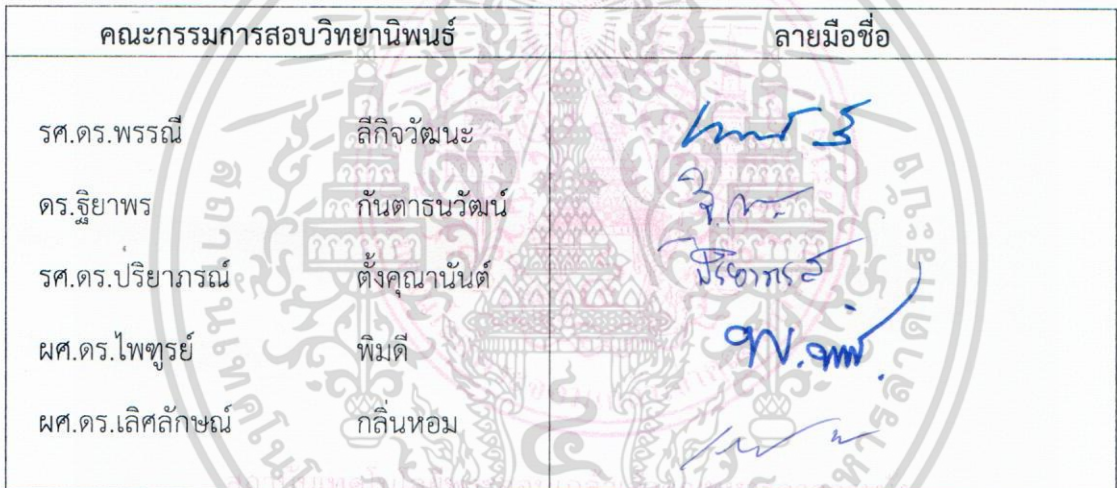 คณะกรรมการสอบวิทยานิพนธ์ ลายมือชื่อ
รศ.ดร.พรรณี ลีกิจวัฒนะ
ดร.ฐิยาพร กันตาธนวัฒน์
รศ.ดร.ปริยาภรณ์ ตั้งคุณานันต์ ปริยาภรณ์
ผศ.ดร.ไพฑูรย์ พิมดี
ผศ.ดร.เลิศลักษณ์ กลิ่นหอม